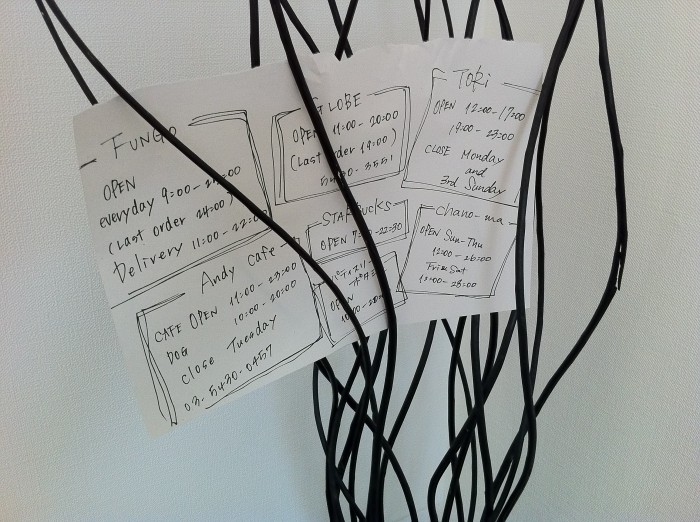 FUNGO
OPEN
everyday 9:00-
(Last order 24:00)
Delivery 11:00-22:00
GLOBE
OPEN 11:00-20:00
(Last order 19:00)
5430-3551
Toki
OPEN 12:00-17:00
19:00-23:00
CLOSE Monday
and
3rd Sunday
Andy cafe
CAFE OPEN 11:00-23:00
DOG 10:00-20:00
close Tuesday
03-5430-0457
STARBUCKS
OPEN 7:00-22:30
OPEN
chano-ma
OPEN Sun-Thu
12:00-26:00
Fri&Sat
12:00-28:00